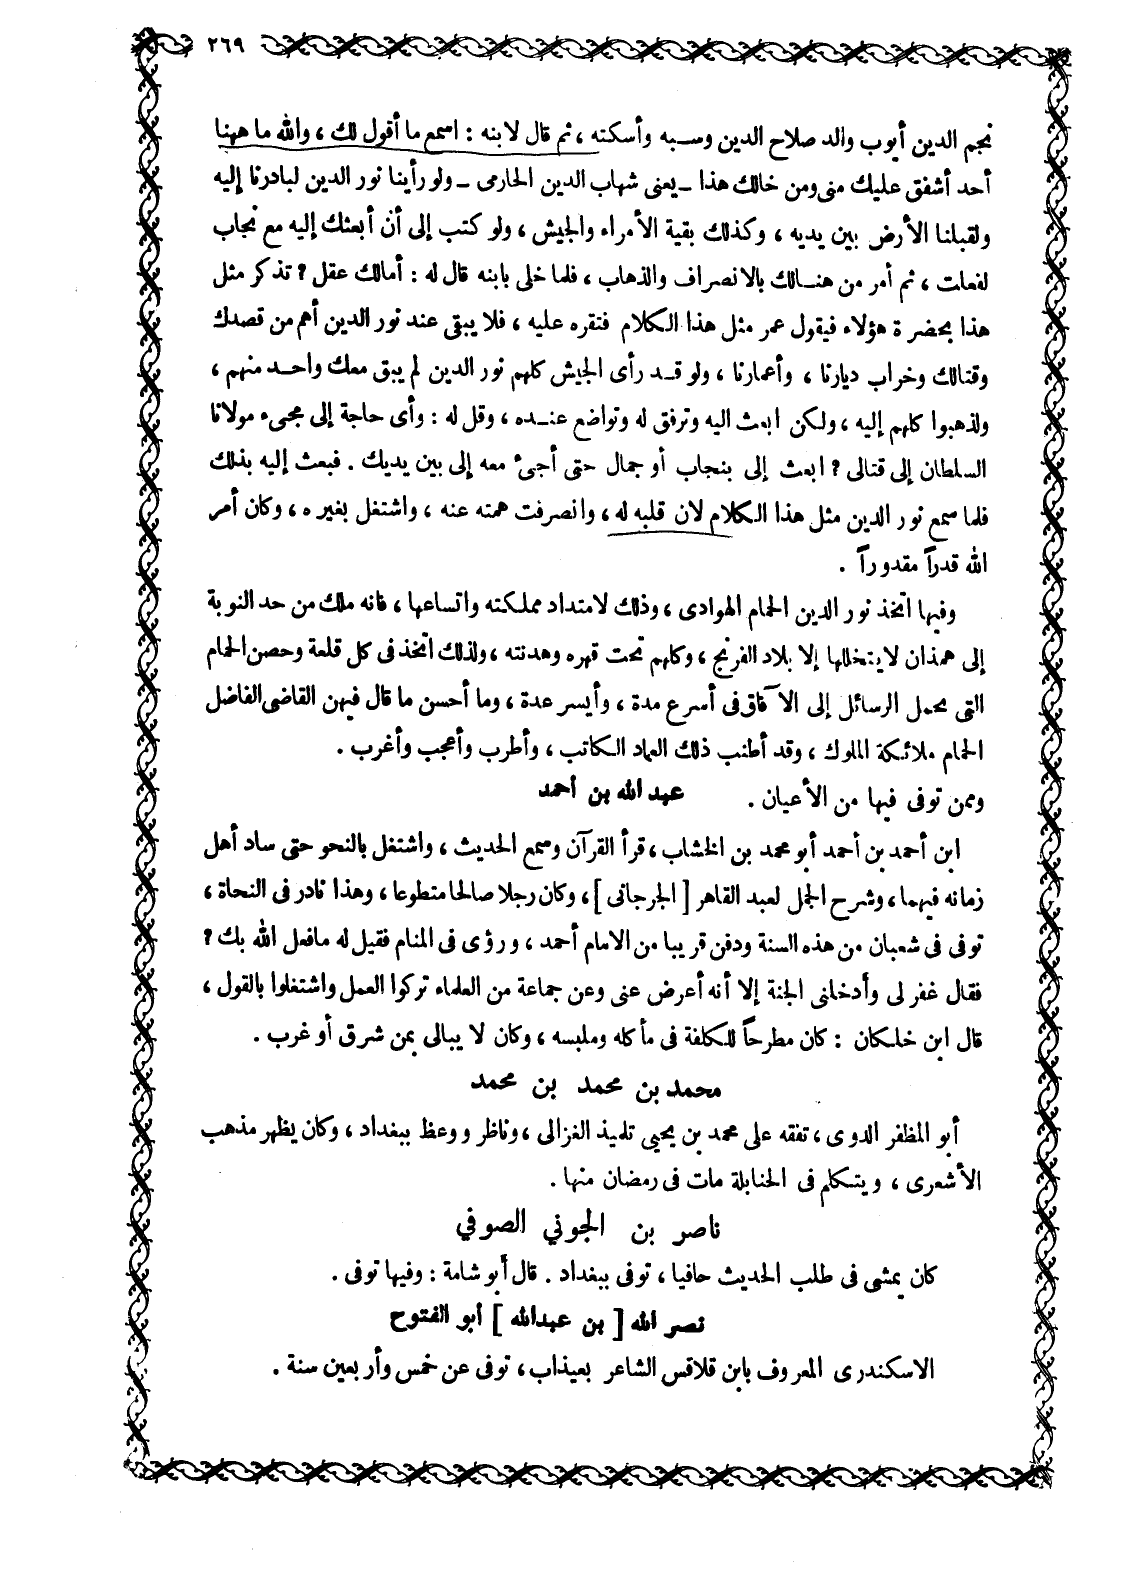 ٢٦٩
نجم الدين أيوب والد صلاح الدين وسبه وأسكته ، ثم قال لابنه : اسمع ما أقول لك ، والله ما ههنا
أحد أشفق عليك منى ومن خالك هذا ـ يعنى شهاب الدين الحارمى ـ ولو رأينا نور الدين لبادرنا إليه
ولقبلنا الأرض بين يديه ، وكذلك بقية الأمراء والجيش ، ولو كتب إلى أن أبعثك إليه مع نجاب
لفعلت ، ثم أمر من هنالك بالانصراف والذهاب ، فلما خلى بابنه قال له : أمالك عقل ؟ تذكر مثل
هذا بحضرة هؤلاء فيقول عمر مثل هذا الكلام فتقره عليه ، فلا يبقى عند نور الدين أهم من قصدك
وقتالك وخراب ديارنا ، وأعمارنا ، ولو قد رأى الجيش كلهم نور الدين لم يبق معك واحد منهم ،
ولذهبوا كلهم إليه ، ولكن ابعث اليه وترفق له وتواضع عنده ، وقل له : وأى حاجة إلى مجىء مولانا
السلطان إلى قتالى ؟ ابعث إلى بنجاب أو جمال حتى أجىء معه إلى بين يديك . فبعث إليه بذلك
فلما سمع نور الدين مثل هذا الكلام لان قلبه له ، وانصرفت همته عنه ، واشتغل بغيره ، وكان أمر
الله قدراً مقدوراً .
وفيها اتخذ نور الدين الحمام الهوادى ، وذلك لامتداد مملكته واتساعها ، فانه ملك من حد النوبة
إلى همذان لايتخللها إلا بلاد الفرنج ، وكلهم تحت قهره وهدنته ، ولذلك اتخذ فى كل قلعة وحصن الحمام
التى يحمل الرسائل إلى الآفاق فى أسرع مدة ، وأيسر عدة ، وما أحسن ما قال فيهن القاضى الفاضل
الحمام ملائكة الملوك ، وقد أطنب ذلك العماد الكاتب ، وأطرب وأعجب وأغرب .
وممن توفى فيها من الأعيان . عبد الله بن أحمد
ابن أحمد بن أحمد أبو محمد بن الخشاب ، قرأ القرآن وسمع الحديث ، واشتغل بالنحو حتى ساد أهل
زمانه فيهما ، وشرح الجمل لعبد القاهر [ الجرجانى ] ، وكان رجلا صالحا متطوعا ، وهذا نادر فى النحاة ،
توفى فى شعبان من هذه السنة ودفن قريبا من الامام أحمد ، ورؤى فى المنام فقيل له مافعل الله بك ؟
فقال غفر لى وأدخلنى الجنة إلا أنه أعرض عنى وعن جماعة من العلماء تركوا العمل واشتغلوا بالقول ،
قال ابن خلكان : كان مطرحاً للكلفة فى مأكله وملبسه ، وكان لا يبالى بمن شرق أو غرب .
محمد بن محمد بن محمد
أبو المظفر الدوى ، تفقه على محمد بن يحيى تلميذ الغزالى ، وناظر ووعظ ببغداد ، وكان يظهر مذهب
الأشعرى ، ويتكلم فى الحنابلة مات فى رمضان منها .
ناصر بن الجوني الصوفي
كان يمشى فى طلب الحديث حافيا ، توفى ببغداد . قال أبو شامة : وفيها توفى .
نصر الله [ بن عبدالله ] أبو الفتوح
الاسكندرى المعروف بابن قلاقس الشاعر بعيذاب ، توفى عن خمس وأربعين سنة .